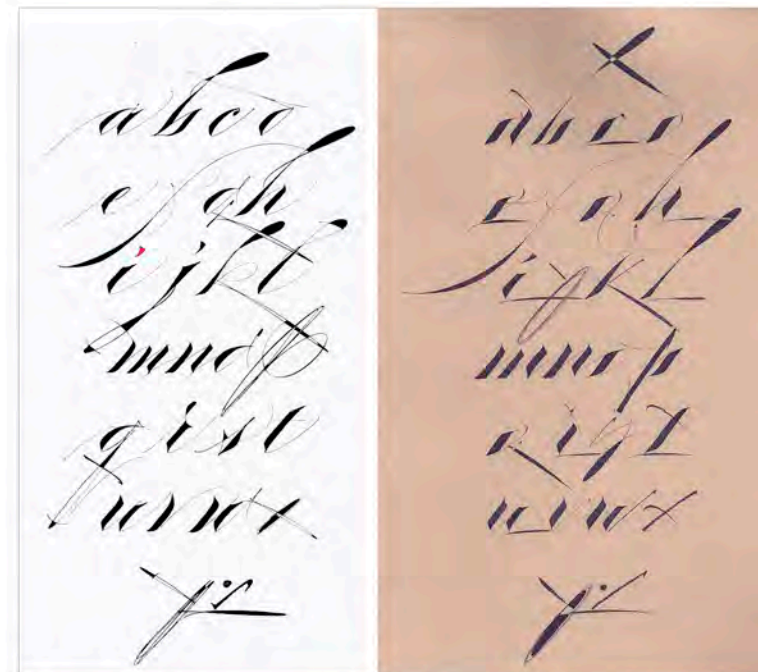 abcd
efgh
ijkl
mnop
qrst
uvwx
yz
abcd
efgh
ijkl
mnop
qrst
uvwx
yz